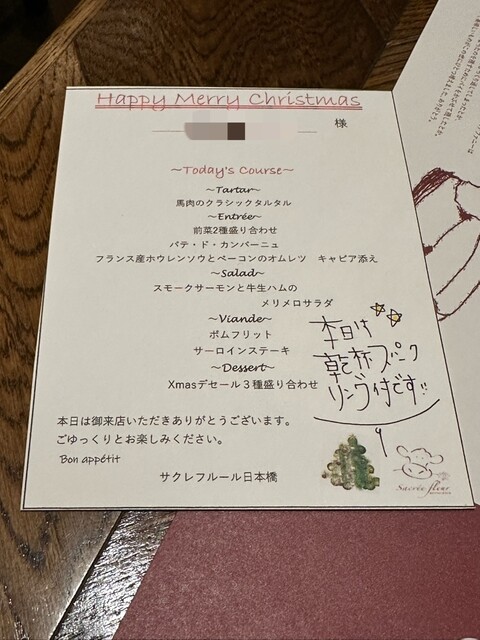 Happy Merry Christmas
様
~Today's Course~
~Tartar~
馬肉のクラシックタルタル
~Entrée~
前菜2種盛り合わせ
パテ・ド・カンパーニュ
フランス産ホウレンソウとベーコンのオムレツ　キャビア添え
~Salad~
スモークサーモンと牛生ハムの
メリメロサラダ
~Viande~
ポムフリット
サーロインステーキ
~Dessert~
Xmasデセール３種盛り合わせ
本日は
乾杯スパーク
リング付です!!
本日は御来店いただきありがとうございます。
ごゆっくりとお楽しみください。
Bon appétit
サクレフルール日本橋
Sacrée fleur